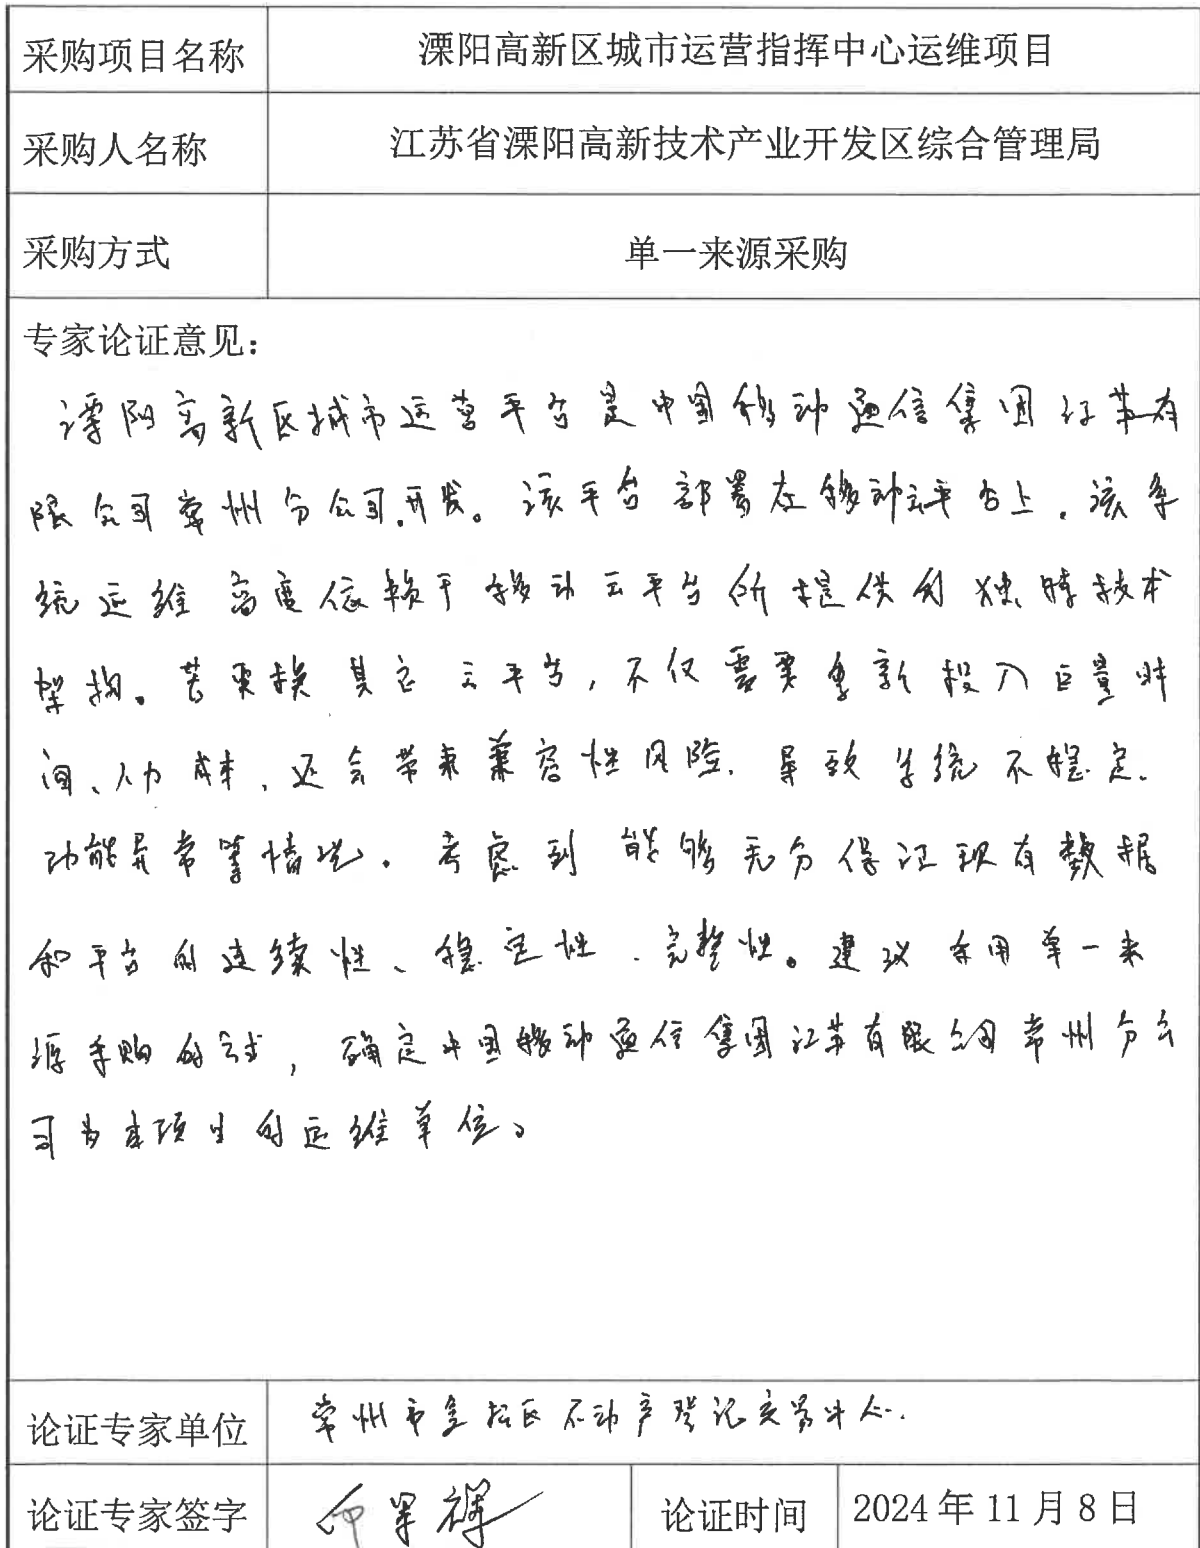 采购项目名称 溧阳高新区城市运营指挥中心运维项目
采购人名称 江苏省溧阳高新技术产业开发区综合管理局
采购方式 单一来源采购
专家论证意见：
溧阳高新区城市运营平台是中国移动通信集团江苏有
限公司常州分公司开发。该平台部署在移动云平台上，该系
统运维高度依赖于移动云平台所提供的独特技术
架构。若更换其它云平台，不仅需要重新投入巨量时
间、人力成本，还会带来兼容性风险，导致系统不稳定、
功能异常等情况。考虑到能够充分保证现有数据
和平台的连续性、稳定性、完整性。建议采用单一来
源采购的方式，确定中国移动通信集团江苏有限公司常州分公
司为本项目的运维单位。
论证专家单位 常州市金坛区不动产登记交易中心.
论证专家签字 论证时间 2024年11月8日